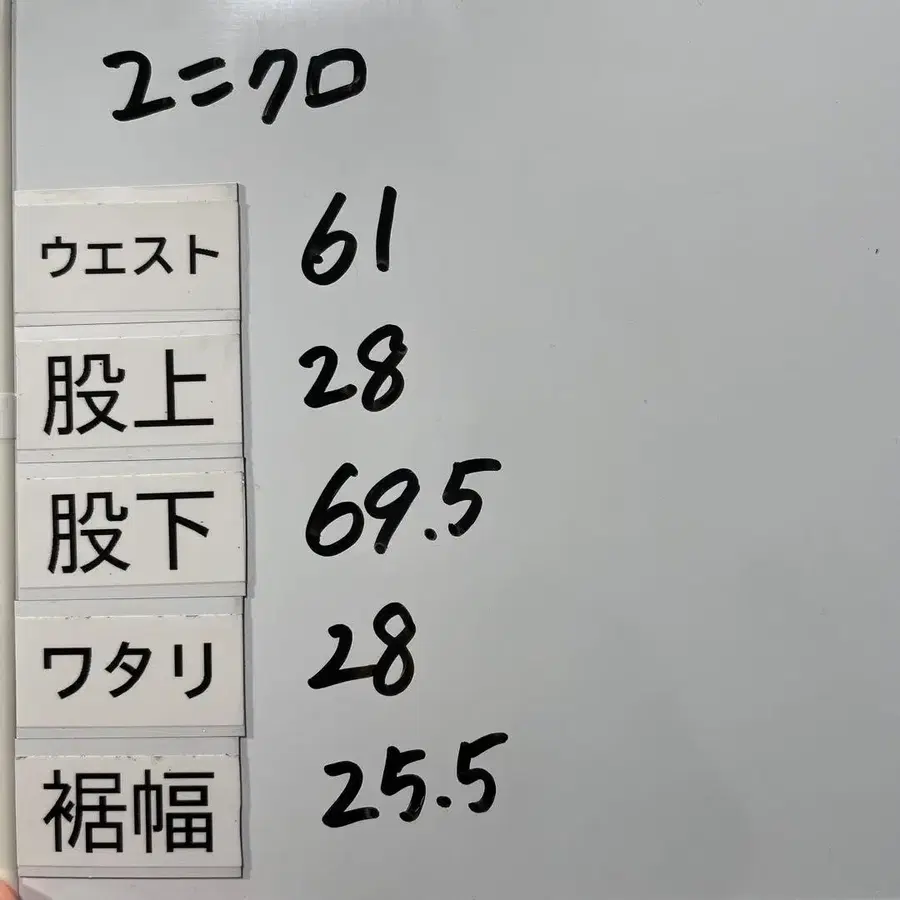 ユニクロ
ウエスト 61
股上 28
股下 69.5
ワタリ 28
裾幅 25.5